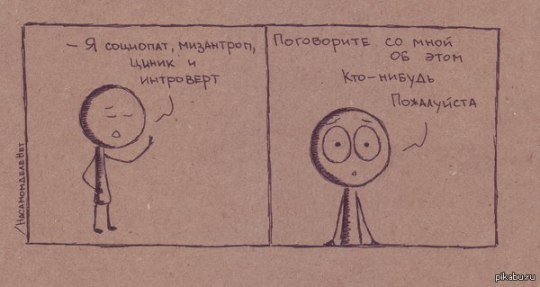 - Я социопат, мизантроп,
циник и
интроверт
Поговорите со мной
об этом
Кто-нибудь
Пожалуйста
/НАСАМОМДЕЛЕНЕТ
pikabu.ru